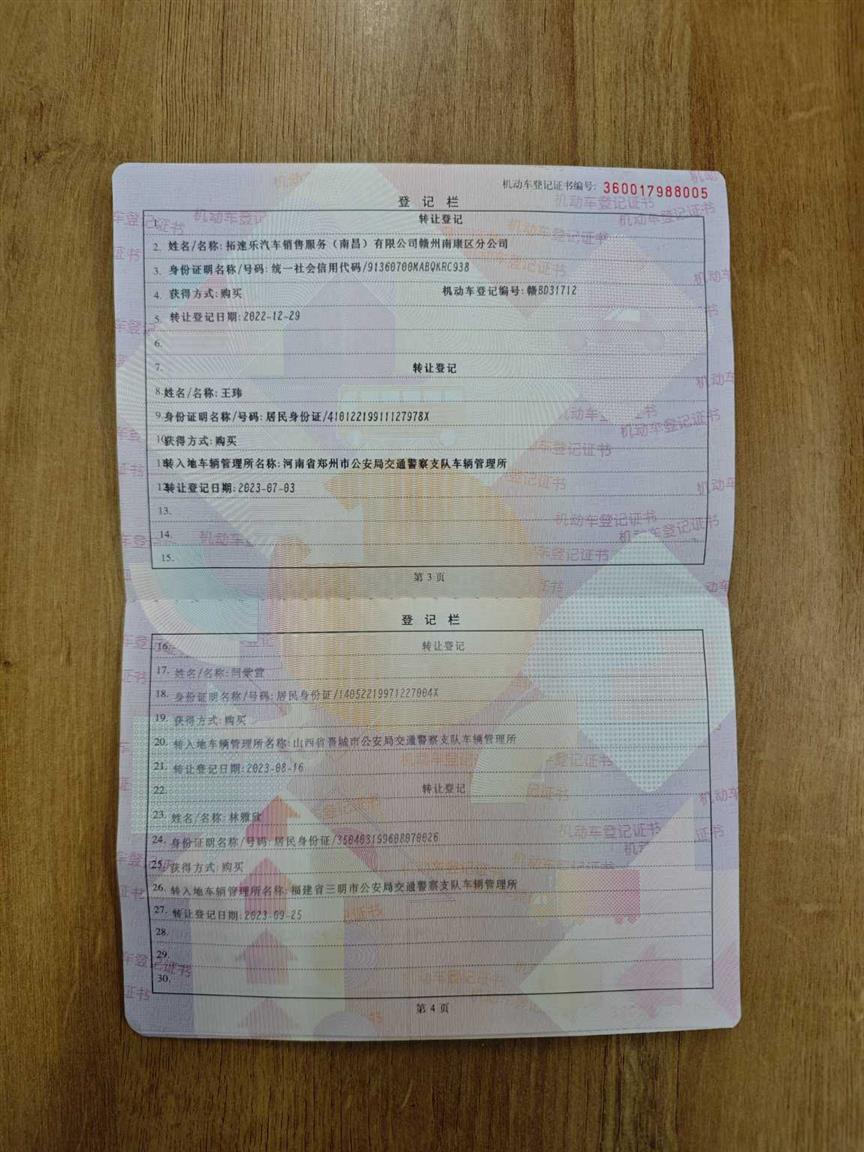 机动车登记证书编号: 360017988005
登 记 栏
1. 转让登记
2. 姓名/名称: 拓速乐汽车销售服务（南昌）有限公司赣州南康区分公司
3. 身份证明名称/号码: 统一社会信用代码/91360700MABQKRC938
4. 获得方式: 购买 机动车登记编号: 赣BD31712
5. 转让登记日期: 2022-12-29
6.
7. 转让登记
8. 姓名/名称: 王玮
9. 身份证明名称/号码: 居民身份证/41012219911127978X
10. 获得方式: 购买
11. 转入地车辆管理所名称: 河南省郑州市公安局交通警察支队车辆管理所
12. 转让登记日期: 2023-07-03
13.
14.
15.
第 3 页
登 记 栏
16. 转让登记
17. 姓名/名称:
18. 身份证明名称/号码: 居民身份证/14052219971227004X
19. 获得方式: 购买
20. 转入地车辆管理所名称: 山西省晋城市公安局交通警察支队车辆管理所
21. 转让登记日期: 2023-08-16
22. 转让登记
23. 姓名/名称: 林雅欣
24. 身份证明名称/号码: 居民身份证/350403199608070026
25. 获得方式: 购买
26. 转入地车辆管理所名称: 福建省三明市公安局交通警察支队车辆管理所
27. 转让登记日期: 2023-09-25
28.
29.
30.
第 4 页